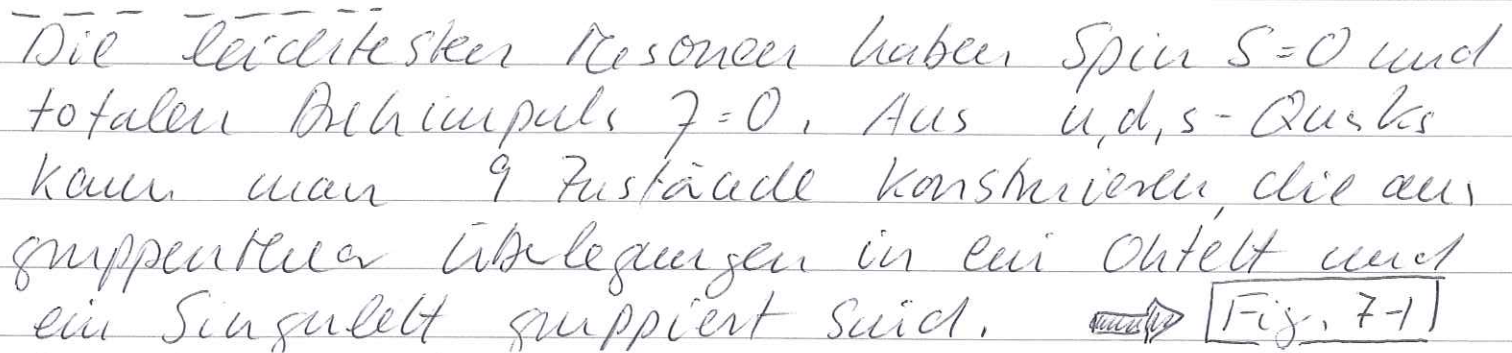 Die leichtesten Mesonen haben Spin S=0 und
totalen Drehimpuls J=0. Aus u,d,s-Quarks
kann man 9 Zustände konstruieren, die aus
gruppentheor Überlegungen in ein Oktett und
ein Singulett gruppiert sind. ⇒ Fig. 7-1